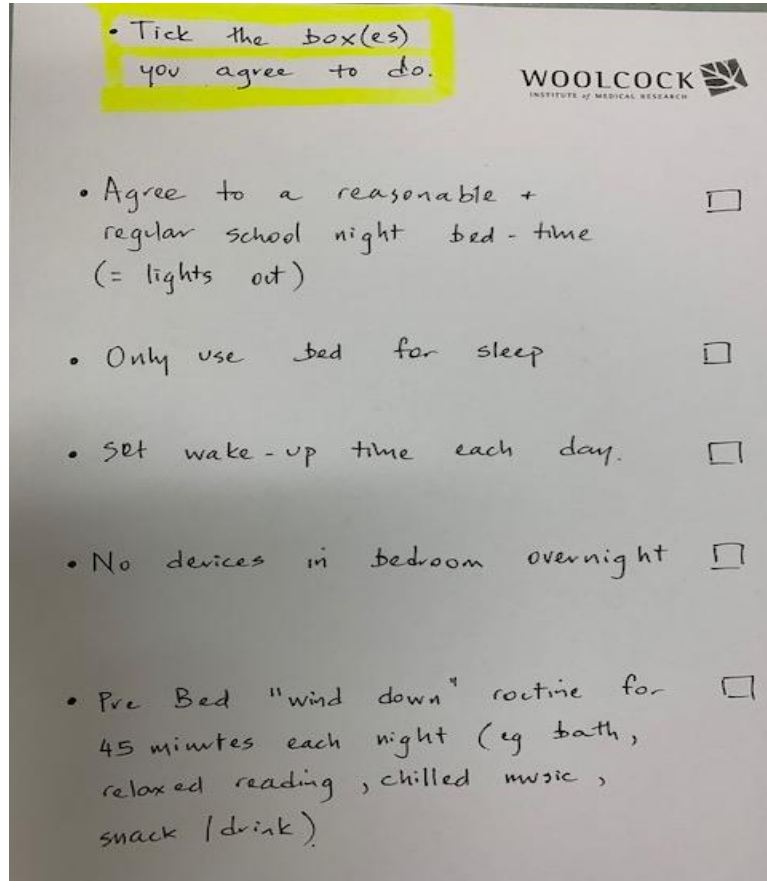 • Tick the box(es)
you agree to do.
WOOLCOCK
INSTITUTE of MEDICAL RESEARCH
• Agree to a reasonable +
regular school night bed-time
(= lights out)
• Only use bed for sleep
• Set wake-up time each day.
• No devices in bedroom overnight
• Pre Bed "wind down" routine for
45 minutes each night (eg bath,
relaxed reading, chilled music,
snack / drink).